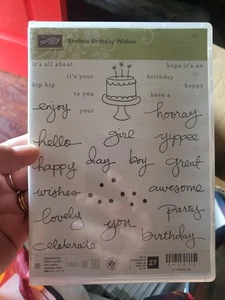 Endless Birthday Wishes
it's all about
hope it's an
it's your
birthday
hip hip
happy
to you
have a
enjoy
your
hooray
hello
girl
yippee
happy
day
boy
great
wishes
awesome
lovely
you
party
celebrate
birthday
27